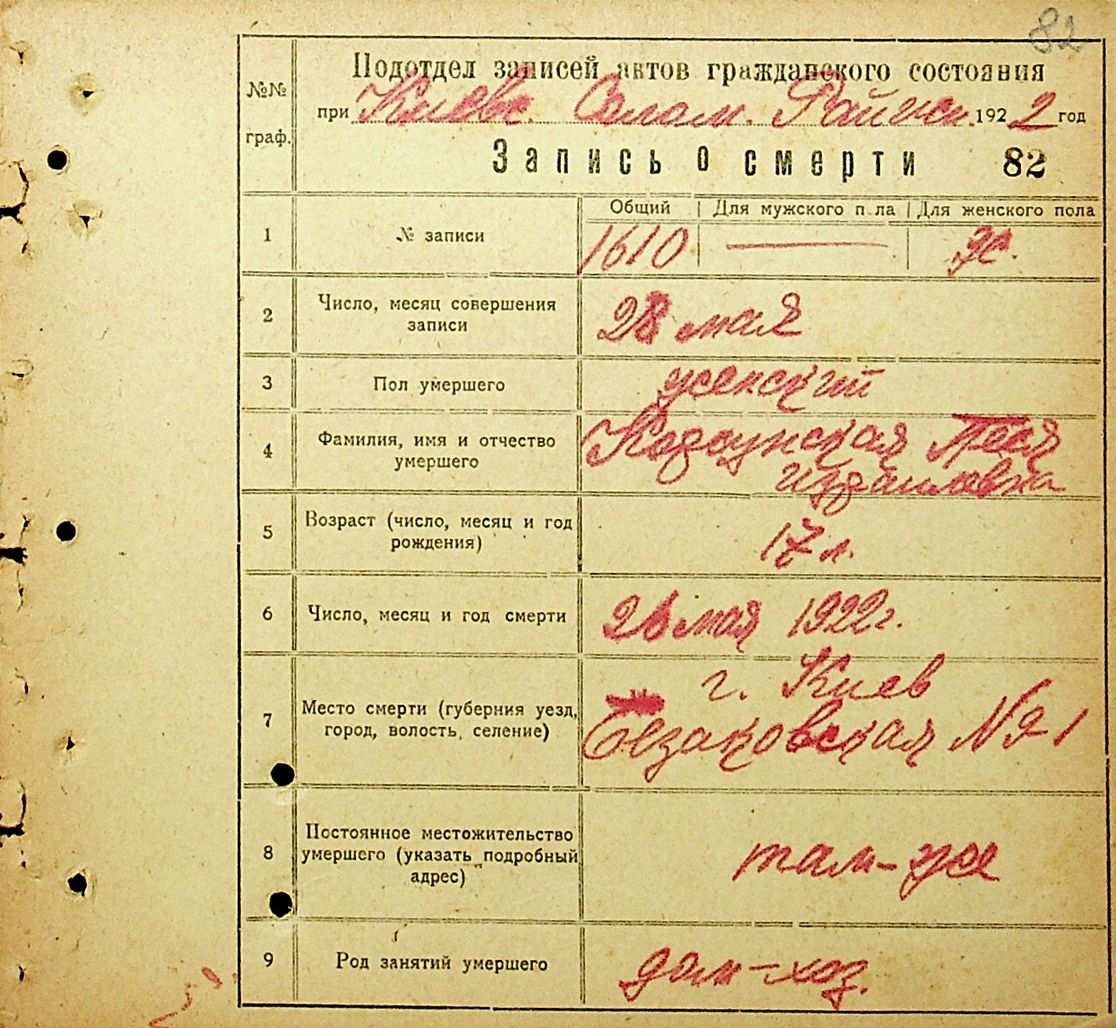 82
№№ граф.
Подотдел записей актов гражданского состояния
при Киевск. Солом. Райиск. 1922 год
Запись о смерти 82
Общий | Для мужского пола | Для женского пола
1 № записи 1610 — ж.
2 Число, месяц совершения
записи
28 мая
3 Пол умершего женский
4 Фамилия, имя и отчество
умершего
Корсунская
Израиловна
5 Возраст (число, месяц и год
рождения)
17 л.
6 Число, месяц и год смерти 26 мая 1922 г.
7 Место смерти (губерния уезд,
город, волость, селение)
г. Киев
Безаковская № 1
8 Постоянное местожительство
умершего (указать подробный
адрес)
там-же
9 Род занятий умершего дом-хоз.